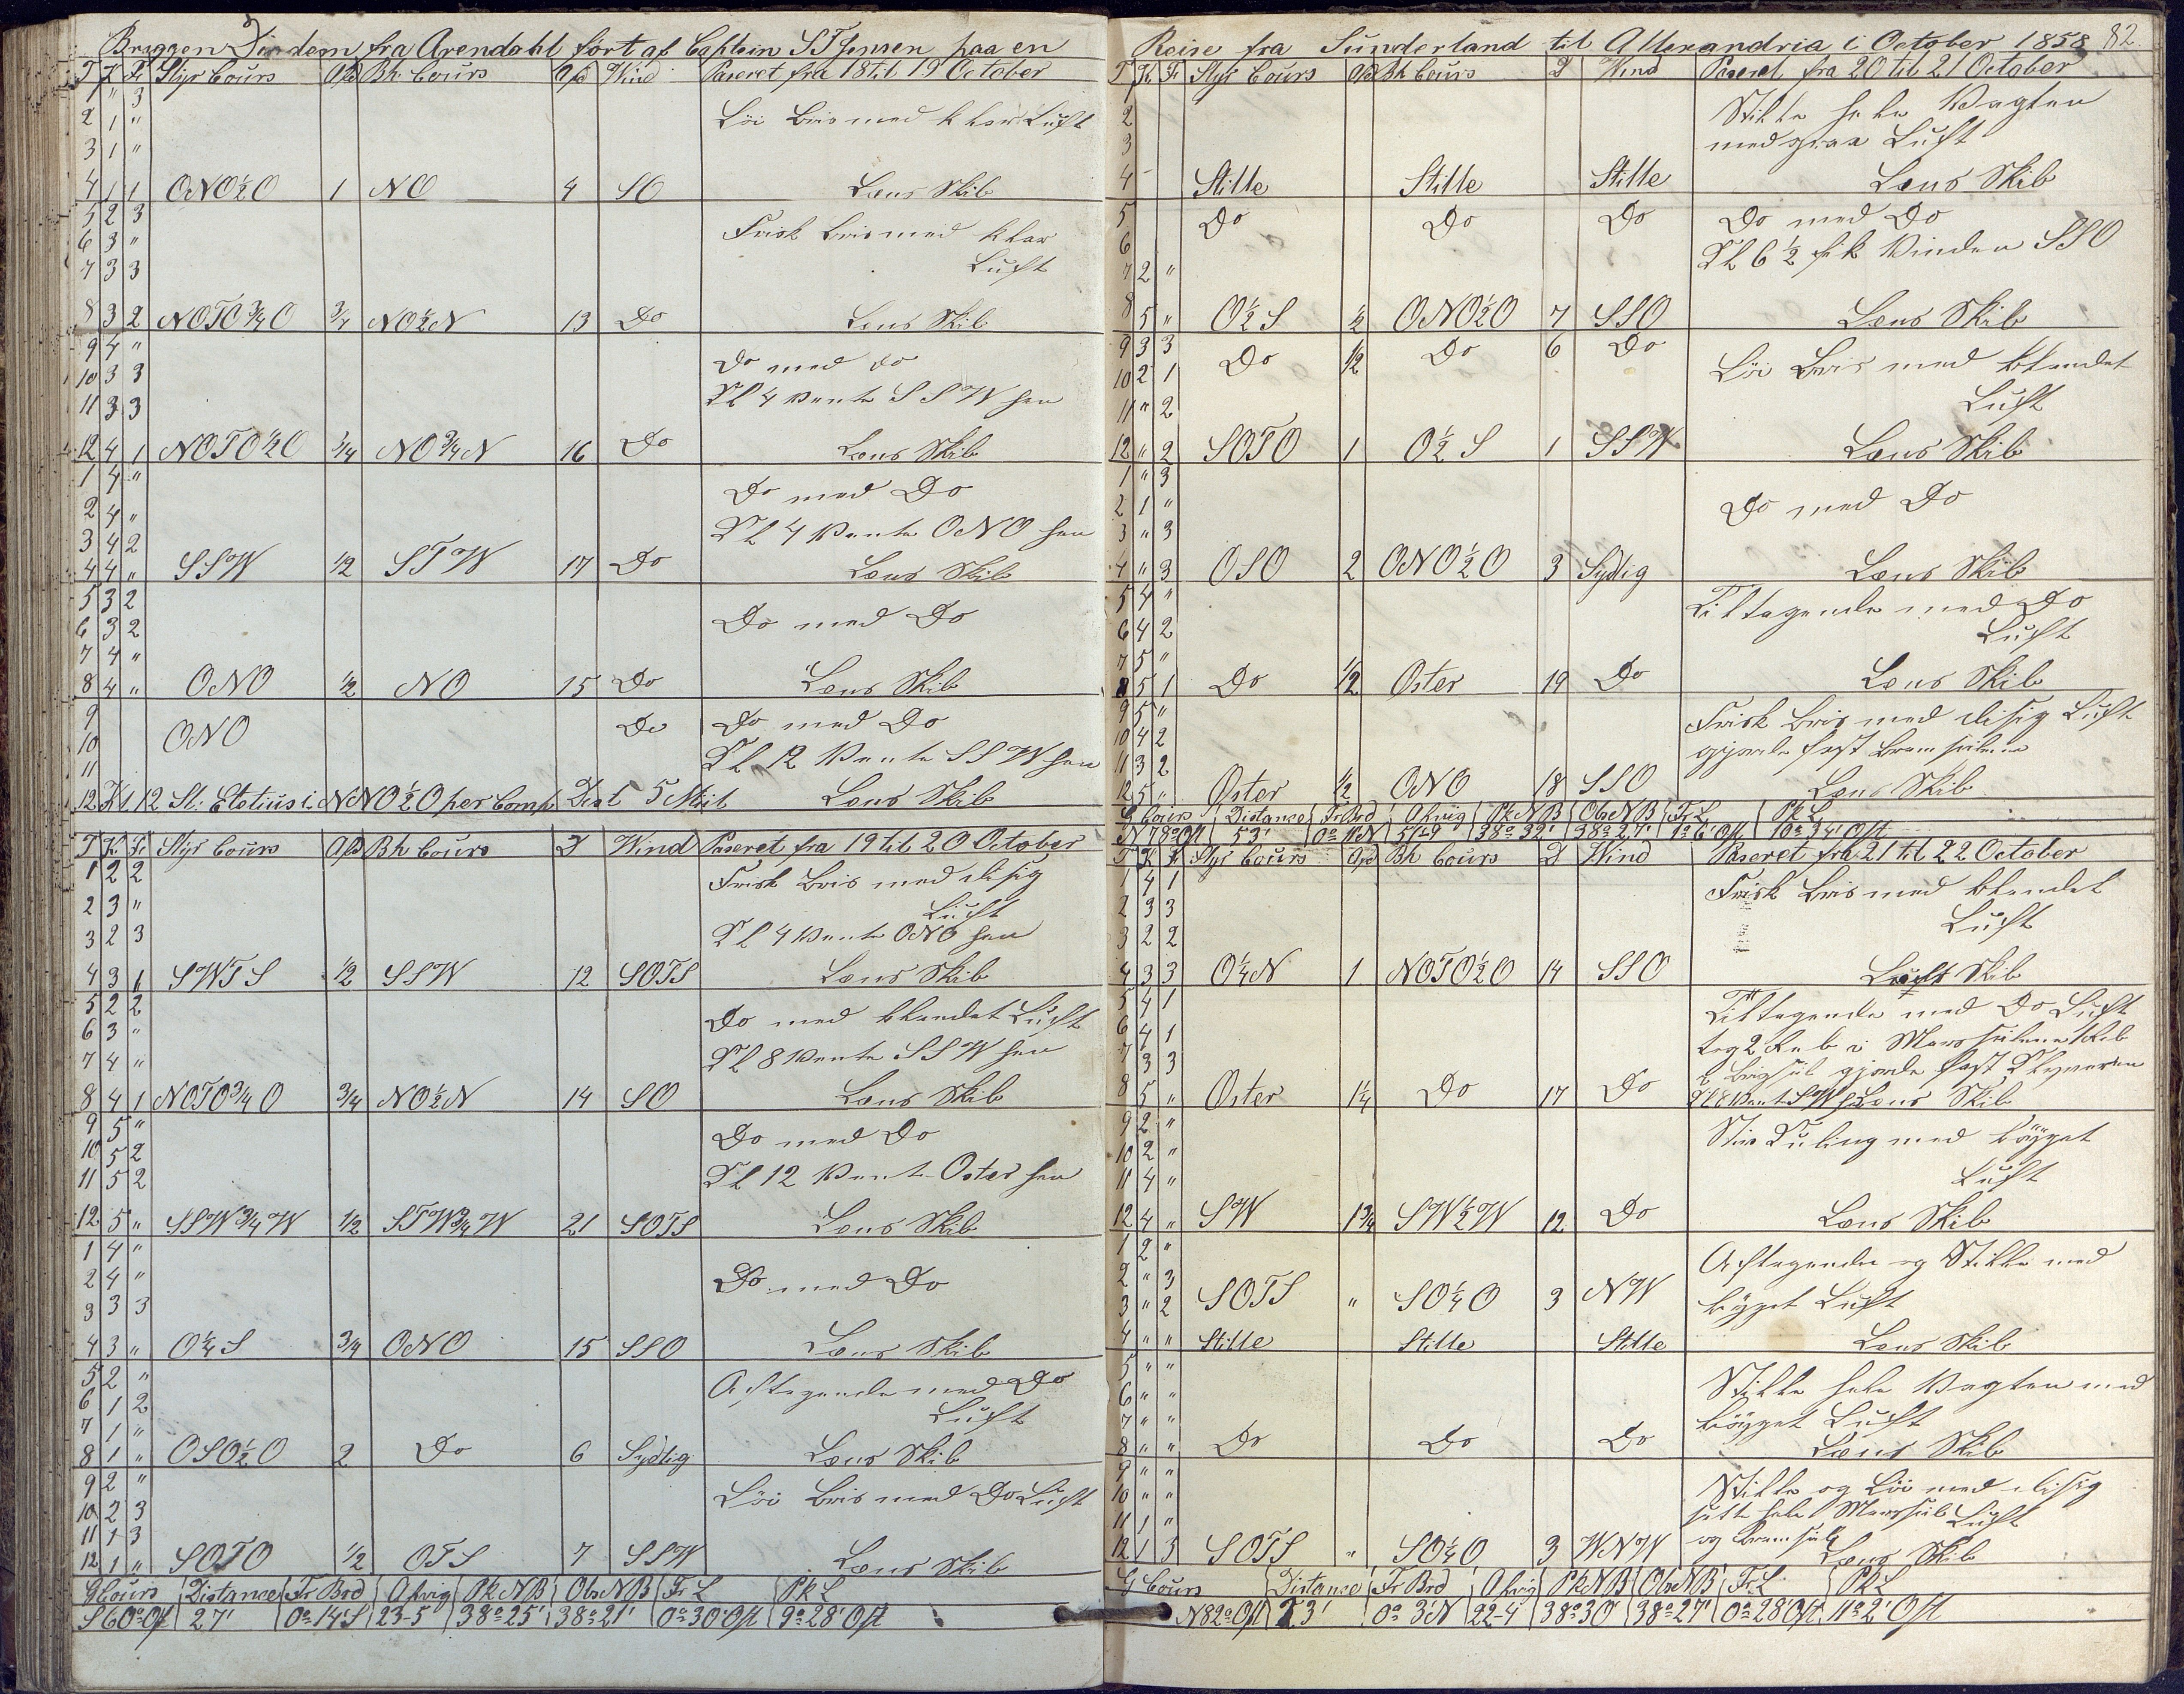 Briggen Diadem fra Arendahl ført af Captein S T Jensen paa en
T K F Styr Cours Afd Bh Cours Afd Wind Paseret fra 18 til 19 October
1 " 3
2 1 " Löi Bris med klar Luft
3 1 "
4 1 1 ONO½O 1 NO 4 SO Lens Skib
5 2 3
6 3 " Frisk Bris med klar
7 3 3 Luft
8 3 2 NOTO¾O ¾ NO½N 13 Do Lens Skib
9 4 "
10 3 3 Do med do
11 3 3 Kl 4 vente SSW hen
12 4 1 NOTO½O ¾ NO¾N 16 Do Lens Skib
1 4 "
2 4 " Do med Do
3 4 2 Kl 4 vente ONO hen
4 4 " SSW ½ STW 17 Do Lens Skib
5 3 2
6 3 2 Do med Do
7 4 "
8 4 " ONO ½ NO 15 Do Lens Skib
9 Do med Do
10 ONO Do
11 Kl 12 vente SSW hen
12 Kl 12 St: Eletius i NNO½O per Comp Dist 5 Miil Lens Skib
T K F Styr Cours Afd Bh Cours D Wind Paseret fra 19 til 20 October
1 2 2 Frisk Bris med disig
2 3 " Luft
3 2 3 Kl 4 vente ONO hen
4 3 1 SWTS ½ SSW 12 SOTS Lens Skib
5 2 2
6 3 " Do med blandet Luft
7 4 " Kl 8 vente SSW hen
8 4 1 NOTO¾O ¾ NO½N 14 SO Lens Skib
9 5 "
10 5 2 Do med Do
11 5 2 Kl 12 vente Oster hen
12 5 " SSW¾W ½ STW¾W 21 SOTS Lens Skib
1 4 "
2 4 " Do med Do
3 3 3
4 3 " O¼S ¾ ONO 15 SSO Lens Skib
5 2 "
6 1 2 Aftagende med Do
7 1 " Luft
8 1 " OSO½O 2 Do 6 Sydlig Lens Skib
9 2 "
10 2 3 Löi Bris med Do Luft
11 1 3
12 1 " SOTO ½ OTS 7 SSW Lens Skib
G Cours Distance Fr Brd Afvig Pk NB Obs NB Fr L Pk L
S 60° Ost 27' 0° 14' S 23-5 38° 25' 38° 21' 0° 30' Ost 9° 28' Ost
Reise fra Sunderland til Allexandria i October 1858 82
T K F Styr Cours Afd Bh Cours D Wind Paseret fra 20 til 21 October
1 Stille hele Vagten
2
3 med graa Luft
4 Stille Stille Stille Lens Skib
5 Do Do Do Do med Do
6 Kl 6½ fik Vinden SSO
7 2 "
8 5 " O½S ½ ONO½O 7 SSO Lens Skib
9 3 3 Do ½ Do 6 Do
10 2 1 Löi Bris med blandet
11 " 2 Luft
12 " 2 SOTO 1 O½S 1 SSW Lens Skib
1 " 3
2 1 " Do med Do
3 " 3
4 " 3 OSO 2 ONO½O 3 Sydlig Lens Skib
5 4 " Tiltagende med Do
6 4 2 Luft
7 5 "
8 5 1 Do ½ Oster 19 Do Lens Skib
9 5 " Frisk Bris med disig Luft
10 4 2 gjorde fast Bramseilene
11 3 2
12 5 " Oster ½ ONO 18 SSO Lens Skib
G Cours Distance Fr Brd Afvig Pk NB Obs NB Fr L Pk L
N 78° Ost 53' 0° 11' N 51-9 38° 32' 38° 27' 1° 6' Ost 10° 34' Ost
T K F Styr Cours Afd Bh Cours D Wind Paseret fra 21 til 22 October
1 4 1 Frisk Bris med blandet
2 3 3 Luft
3 2 2
4 3 3 O¼N 1 NOTO½O 14 SSO Skib
5 4 1 Tiltagende med Do Luft
6 4 1 tog 2 Reb i Mersseilene 1 Reb
7 3 3 i Brigseil gjorde fast Klyveren
8 5 " Oster 1¼ Do 17 Do Kl 8 vent SW hen Lens Skib
9 2 " Stiv Kuling med bÿget
10 2 "
11 4 " Luft
12 4 " SW 1¾ SW½W 12 Do Lens Skib
1 2 " Aftagende og Stille med
2 " 3 SOTS " SO¼O 3 NW
3 " 2 bÿget Luft
4 " " Stille Stille Stille Lens Skib
5 " "
6 " " Stille hele Vagten med
7 " " bÿget Luft
8 " " Do Do Do Lens Skib
9 " " Stille og Löi med disig
10 " " sette hele Mersseil Luft
11 1 " og Bramseil
12 1 3 SOTS " SO¼O 3 WNW Lens Skib
G Cours Distance Fr Brd Afvig Pk NB Obs NB Fr L Pk L
N 82° Ost 23' 0° 3' N 22-4 38° 30' 38° 27' 0° 28' Ost 11° 2' Ost